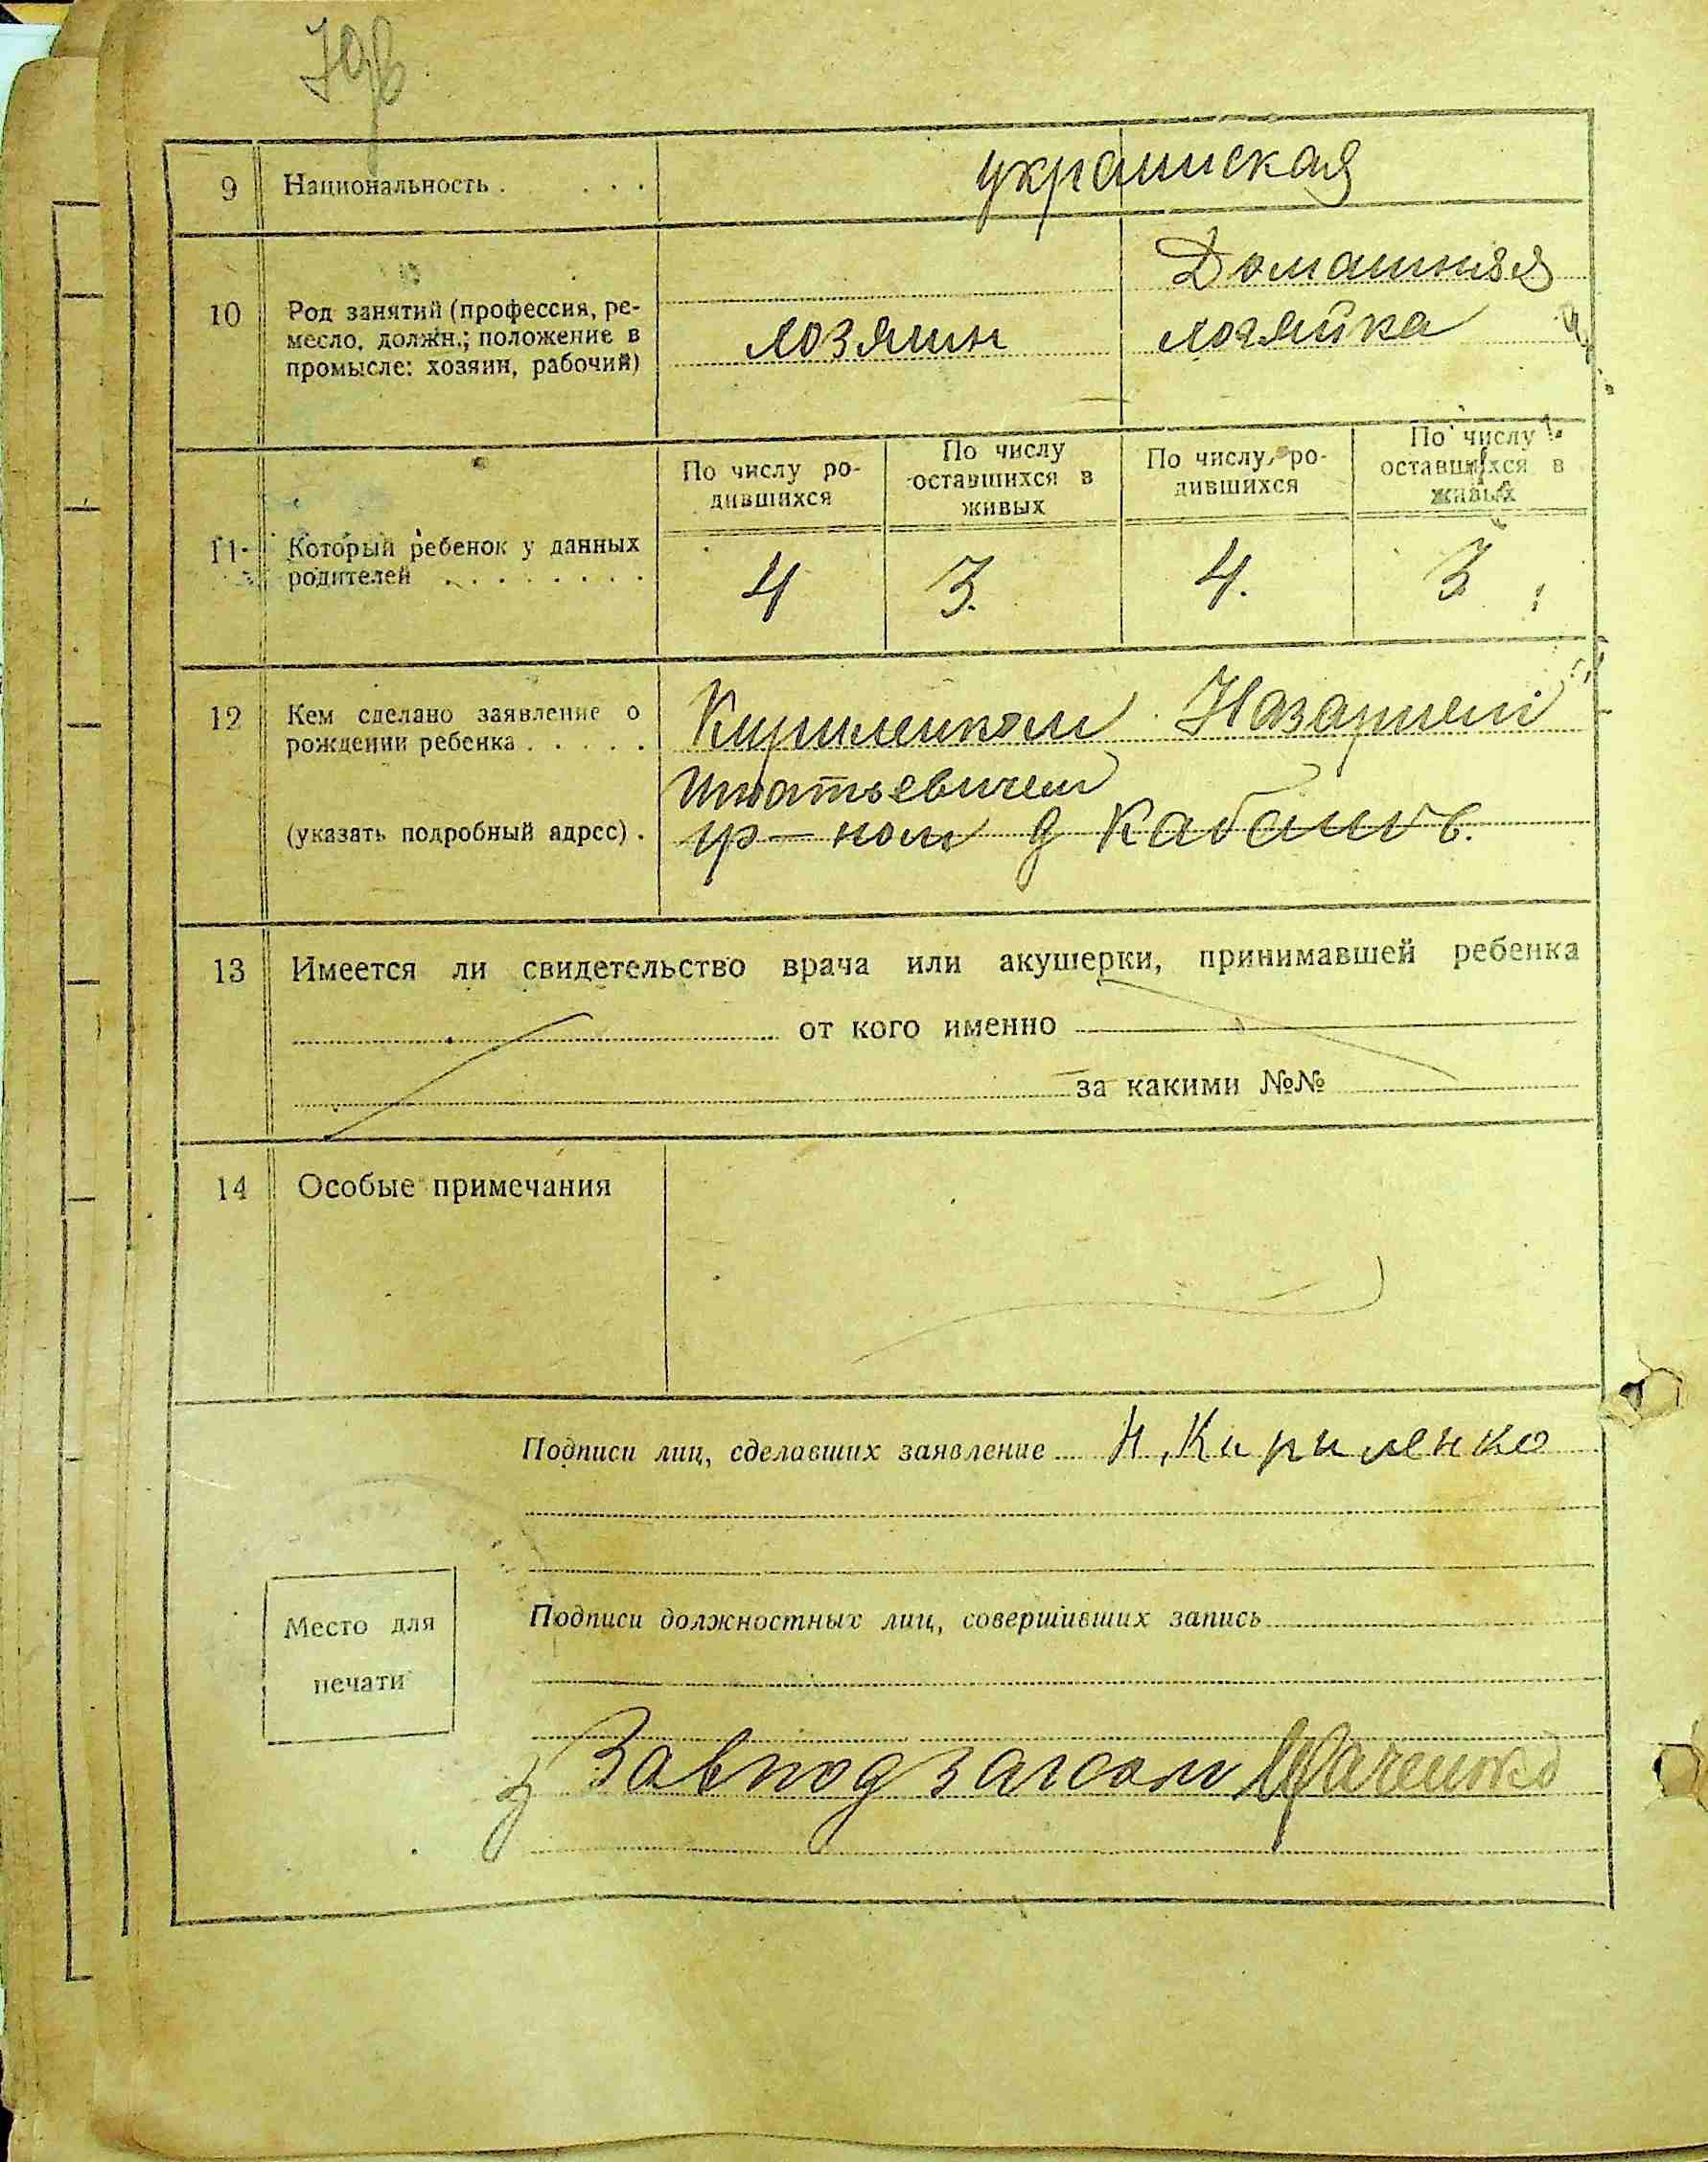 9 Национальность . . . . украинская
10 Род занятий (профессия, ре-
месло, должн.; положение в
промысле: хозяин, рабочий)
хозяин
Домашняя
хозяйка
11 Который ребенок у данных
родителей . . . . . . . .
По числу ро-
дившихся
По числу
оставшихся в
живых
По числу ро-
дившихся
По числу
оставшихся в
живых
4 3. 4. 3
12 Кем сделано заявление о
рождении ребенка . . . . .
(указать подробный адрес) .
Кириленком Назарием
Игнатьевичем
гр-ном д
13 Имеется ли свидетельство врача или акушерки, принимавшей ребенка
от кого именно
за какими №№
14 Особые примечания
Подписи лиц, сделавших заявление Н. Кириленко
Место для
печати
Подписи должностных лиц, совершивших запись
Завподзагсом